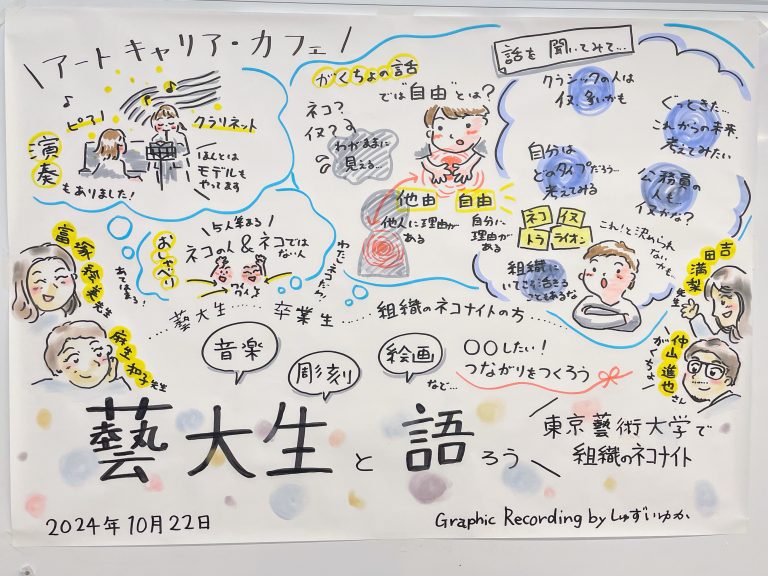 アートキャリア・カフェ
ピアノ
クラリネット
演奏
もありました!
ほんとは
モデルも
やってます
がくちょの話
では"自由"とは?
ネコ?
イヌ?
わがままに
見える…
他由
自由
他人に理由が
ある
自分に
理由が
ある
話を聞いてみて…
クラシックの人は
イヌ、多いかも
ぐっときた…
これからの未来、
考えてみたい
自分は
どのタイプだろう…
考えてみる
公務員の
人も…
イヌかな?
ネコ
イヌ
トラ
ライオン
これ!と決められ
ない
かも
組織に
いてこそ活きる
こともあるな
5人集まる
おしゃべり
ネコの人&ネコでは
ない人
ワイワイ
先生
麻生和子先生
吉田満梨先生
仲山進也さん
がくちょ
藝大生……卒業生……組織のネコナイトの方
音楽
彫刻
絵画
など…
〇〇したい!
つながりをつくろう
藝大生と語ろう
東京藝術大学で
組織のネコナイト
2024年10月22日
Graphic Recording by しゅずいゆか